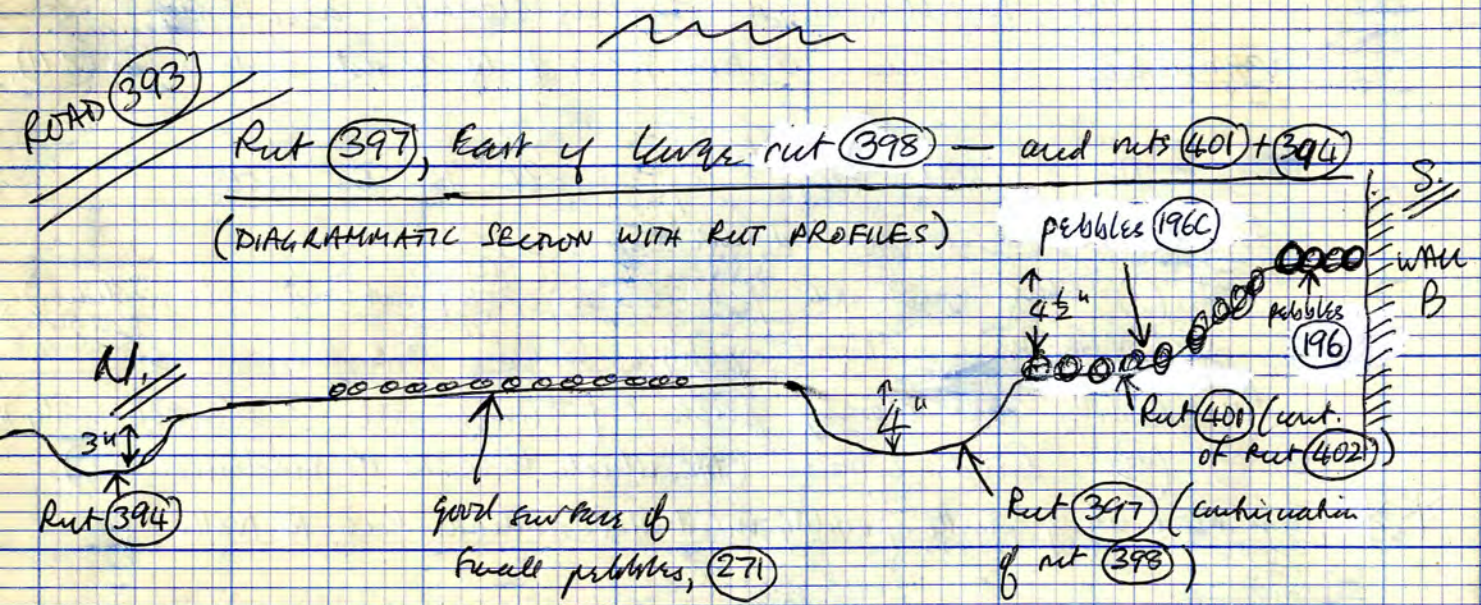 ROAD (393)
Rut (397), East of large rut (398) — and ruts (401) + (394)
(DIAGRAMMATIC SECTION WITH RUT PROFILES)
S.
pebbles (196C)
4½"
WALL
B
pebbles
(196)
N.
3"
4"
Rut (401) (cont.
of Rut (402))
Rut (394)
good surface of
small pebbles, (271)
Rut (397) (continuation
of rut (398))